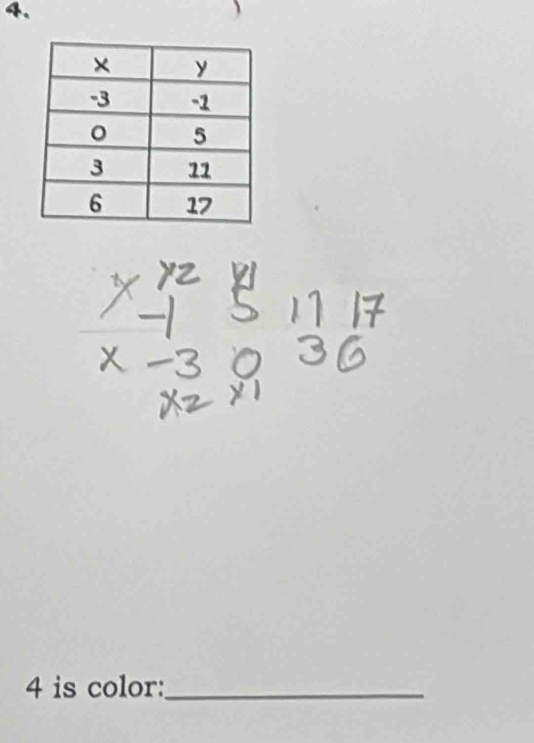 4.
x y
-3 -1
0 5
3 11
6 17
y y2 y1
-1 5 11 17
x -3 0 3 6
x2 x1
4 is color: